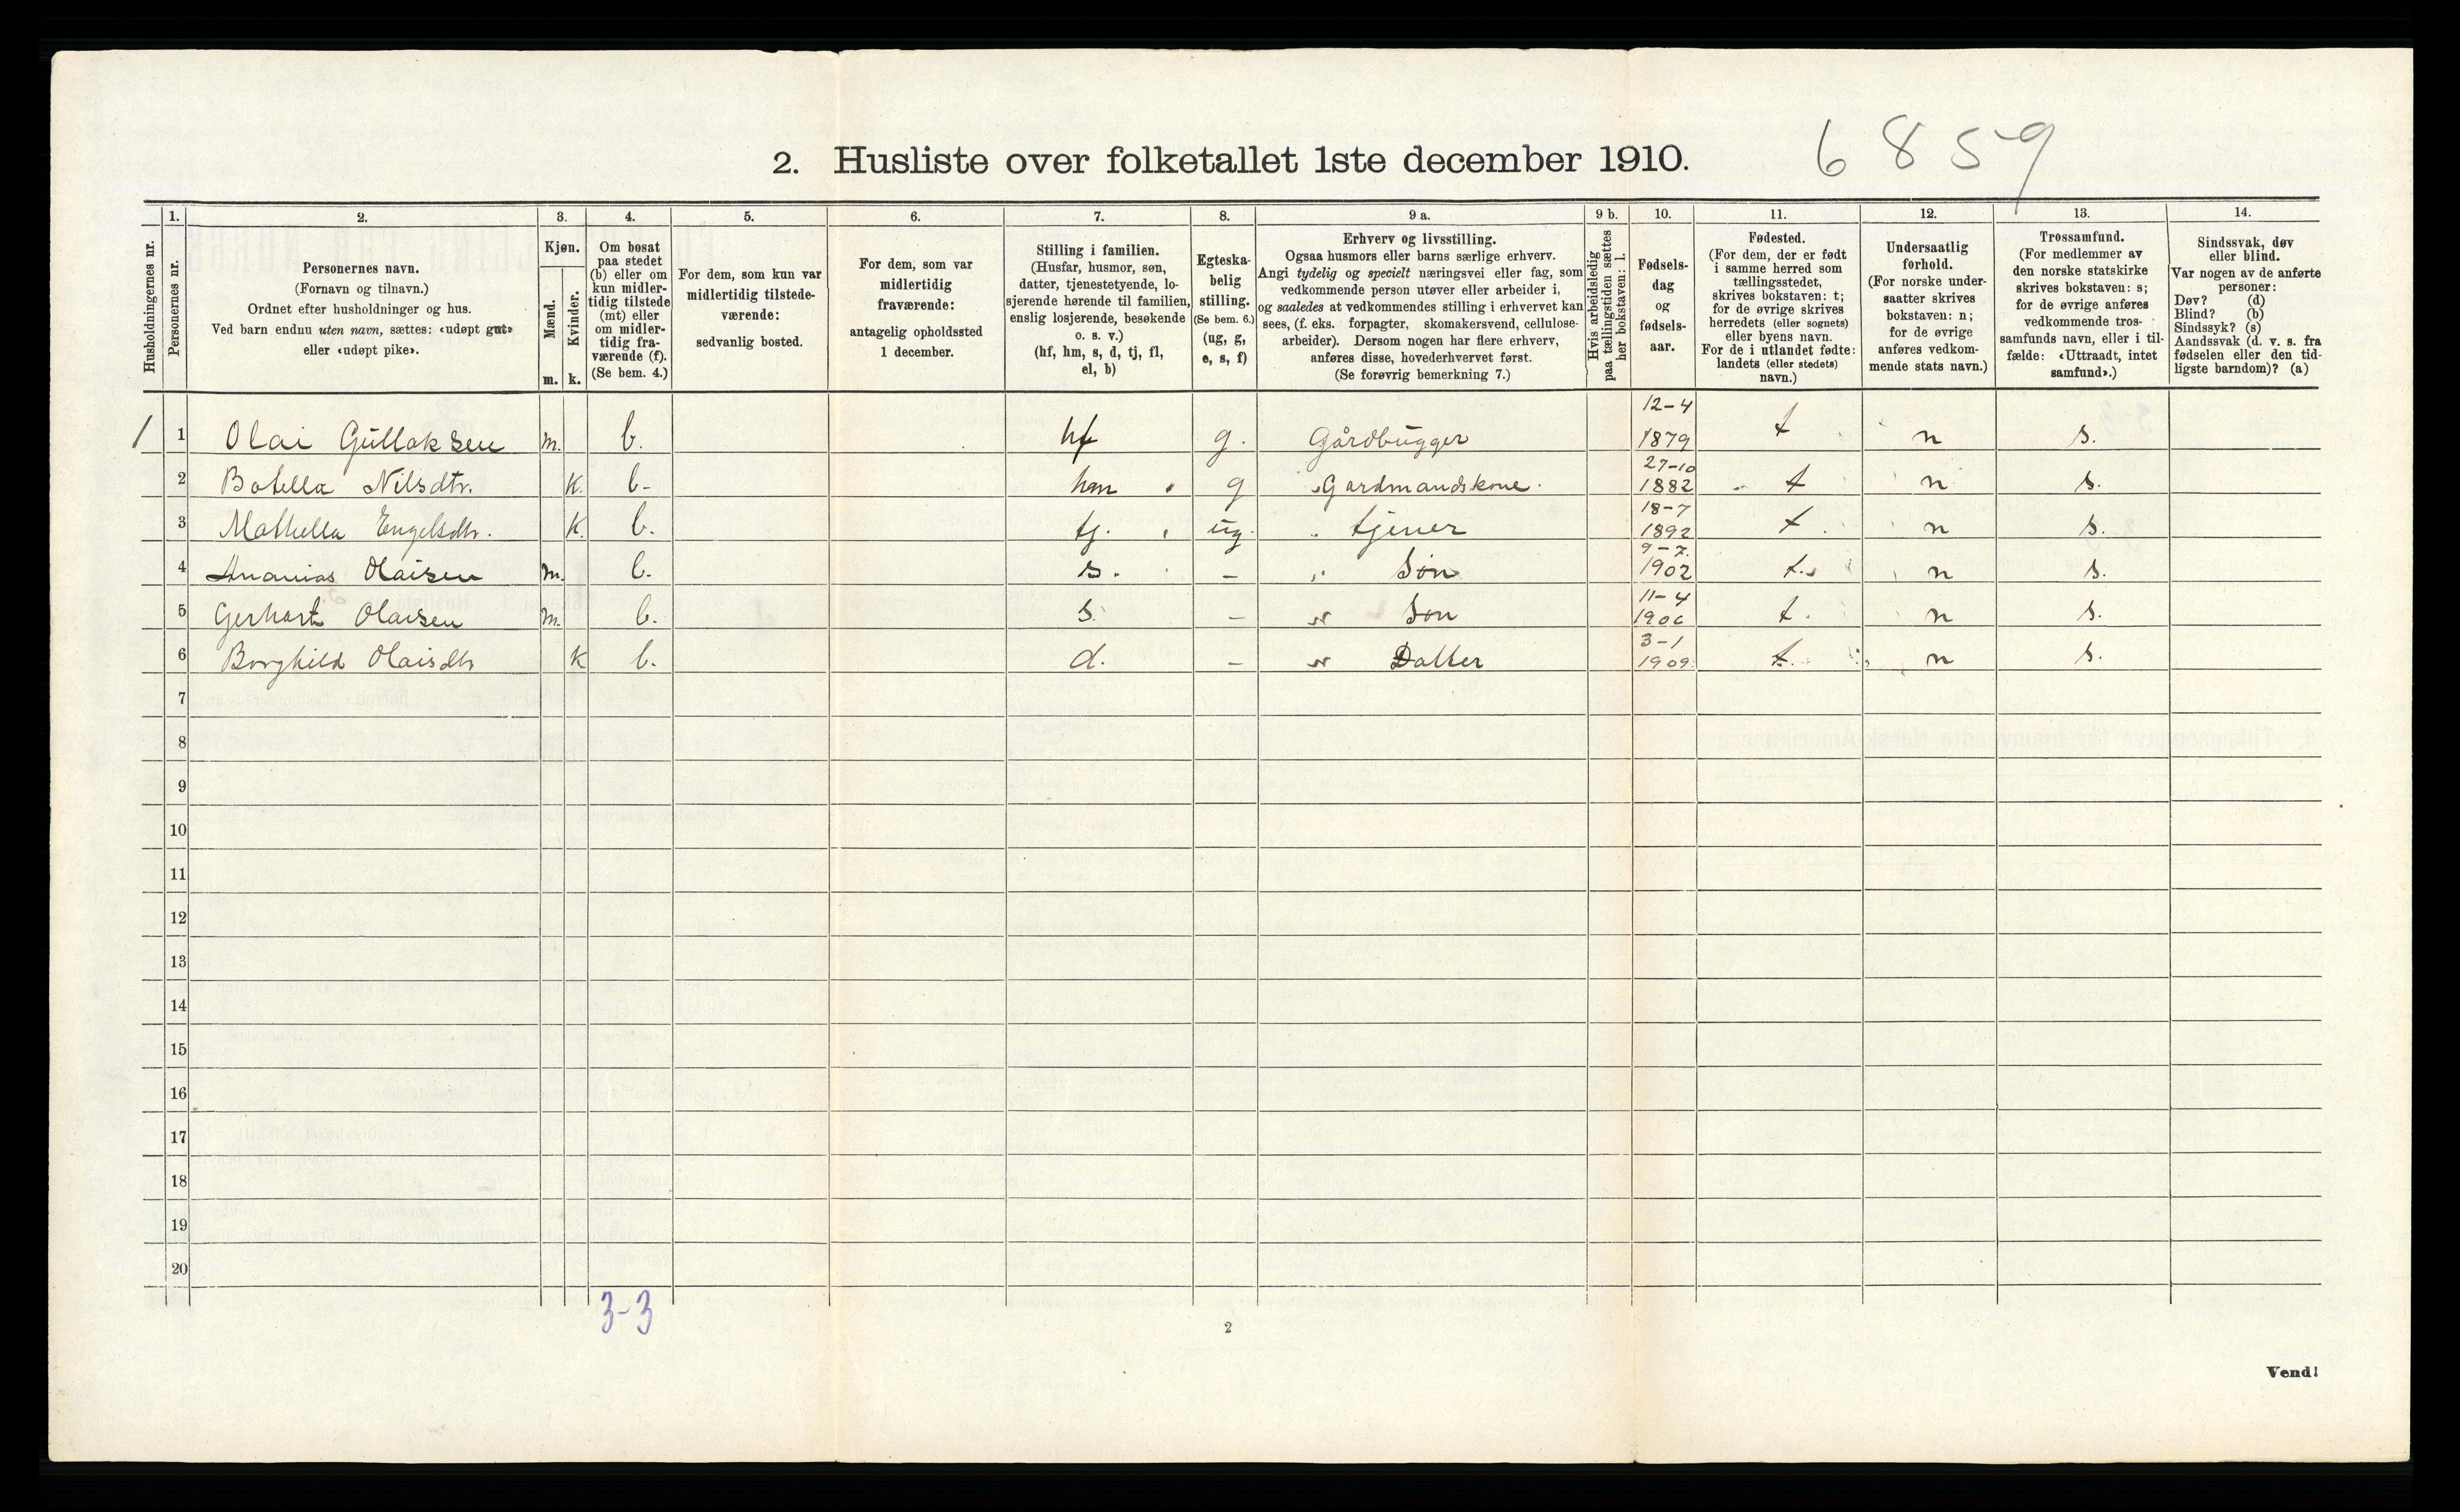 6859
2. Husliste over folketallet 1ste december 1910.
Husholdningernes nr.
1. Personernes nr.
2. Personernes navn.
(Fornavn og tilnavn.)
Ordnet efter husholdninger og hus.
Ved barn endnu uten navn, sættes: «udøpt gut»
eller «udøpt pike».
3. Kjøn.
Mænd. m.
Kvinder. k.
4. Om bosat
paa stedet
(b) eller om
kun midler-
tidig tilstede
(mt) eller
om midler-
tidig fra-
værende (f).
(Se bem. 4.)
5. For dem, som kun var
midlertidig tilstede-
værende:
sedvanlig bosted.
6. For dem, som var
midlertidig
fraværende:
antagelig opholdssted
1 december.
7. Stilling i familien.
(Husfar, husmor, søn,
datter, tjenestetyende, lo-
sjerende hørende til familien,
enslig losjerende, besøkende
o. s. v.)
(hf, hm, s, d, tj, fl,
el, b)
8. Egteska-
belig
stilling.
(Se bem. 6.)
(ug, g,
e, s, f)
9 a. Erhverv og livsstilling.
Ogsaa husmors eller barns særlige erhverv.
Angi tydelig og specielt næringsvei eller fag, som
vedkommende person utøver eller arbeider i,
og saaledes at vedkommendes stilling i erhvervet kan
sees, (f. eks. forpagter, skomakersvend, cellulose-
arbeider). Dersom nogen har flere erhverv,
anføres disse, hovederhvervet først.
(Se forøvrig bemerkning 7.)
9 b. Hvis arbeidsledig
paa tællingstiden sættes
her bokstaven: l.
10. Fødsels-
dag
og
fødsels-
aar.
11. Fødested.
(For dem, der er født
i samme herred som
tællingsstedet,
skrives bokstaven: t;
for de øvrige skrives
herredets (eller sognets)
eller byens navn.
For de i utlandet fødte:
landets (eller stedets)
navn.)
12. Undersaatlig
forhold.
(For norske under-
saatter skrives
bokstaven: n;
for de øvrige
anføres vedkom-
mende stats navn.)
13. Trossamfund.
(For medlemmer av
den norske statskirke
skrives bokstaven: s;
for de øvrige anføres
vedkommende tros-
samfunds navn, eller i til-
fælde: «Uttraadt, intet
samfund».)
14. Sindssvak, døv
eller blind.
Var nogen av de anførte
personer:
Døv? (d)
Blind? (b)
Sindssyk? (s)
Aandssvak (d. v. s. fra
fødselen eller den tid-
ligste barndom)? (a)
1 1 Olai Gullaksen m. b. hf g. Gårdbrugger 12-4 1879 t n s.
2 Botella Nilsdtr. K. b- hm g Gardmandskone. 27-10 1882 t n s.
3 Mathella Engelsdtr. K. b. tj. ug. tjener 18-7 1892 t n s.
4 Ananias Olaisen m. b. s. - Søn 9-7. 1902 t. n s.
5 Gerhart Olaisen m. b. s. - Søn 11-4 1906 t. n s.
6 Borghild Olaisdtr K b. d. - Datter 3-1 1909 t. n s.
7
8
9
10
11
12
13
14
15
16
17
18
19
20
3-3
2
Vend!